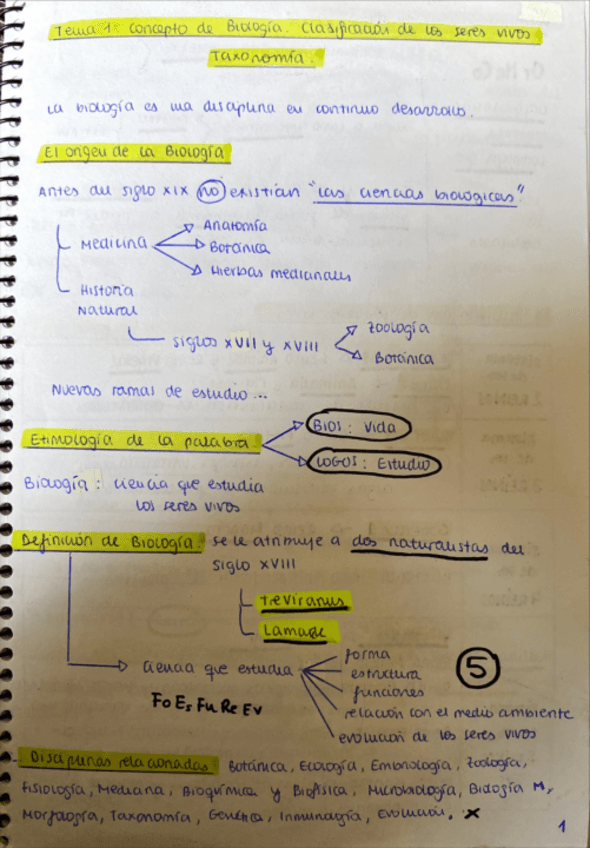 Tema 1: Concepto de Biología. Clasificación de los seres vivos
Taxonomía.
La biología es una disciplina en continuo desarrollo.
El origen de la Biología
Antes del siglo XIX no existían "las ciencias biológicas"
Medicina
Anatomía
Botánica
Hierbas medicinales
Historia
Natural
siglos XVII y XVIII
Zoología
Botánica
Nuevas ramas de estudio...
Etimología de la palabra
BIOS: Vida
LOGOS: Estudio
Biología: ciencia que estudia
los seres vivos
Definición de Biología: se le atribuye a dos naturalistas del
siglo XVIII
Treviranus
Lamarck
ciencia que estudia
forma
estructura
funciones
relación con el medio ambiente
evolución de los seres vivos
5
Fo Es Fu Re Ev
Disciplinas relacionadas: Botánica, Ecología, Embriología, Zoología,
Fisiología, Medicina, Bioquímica y Biofísica, Microbiología, Biología M,
Morfología, Taxonomía, Genética, Inmunología, Evolución. X
1